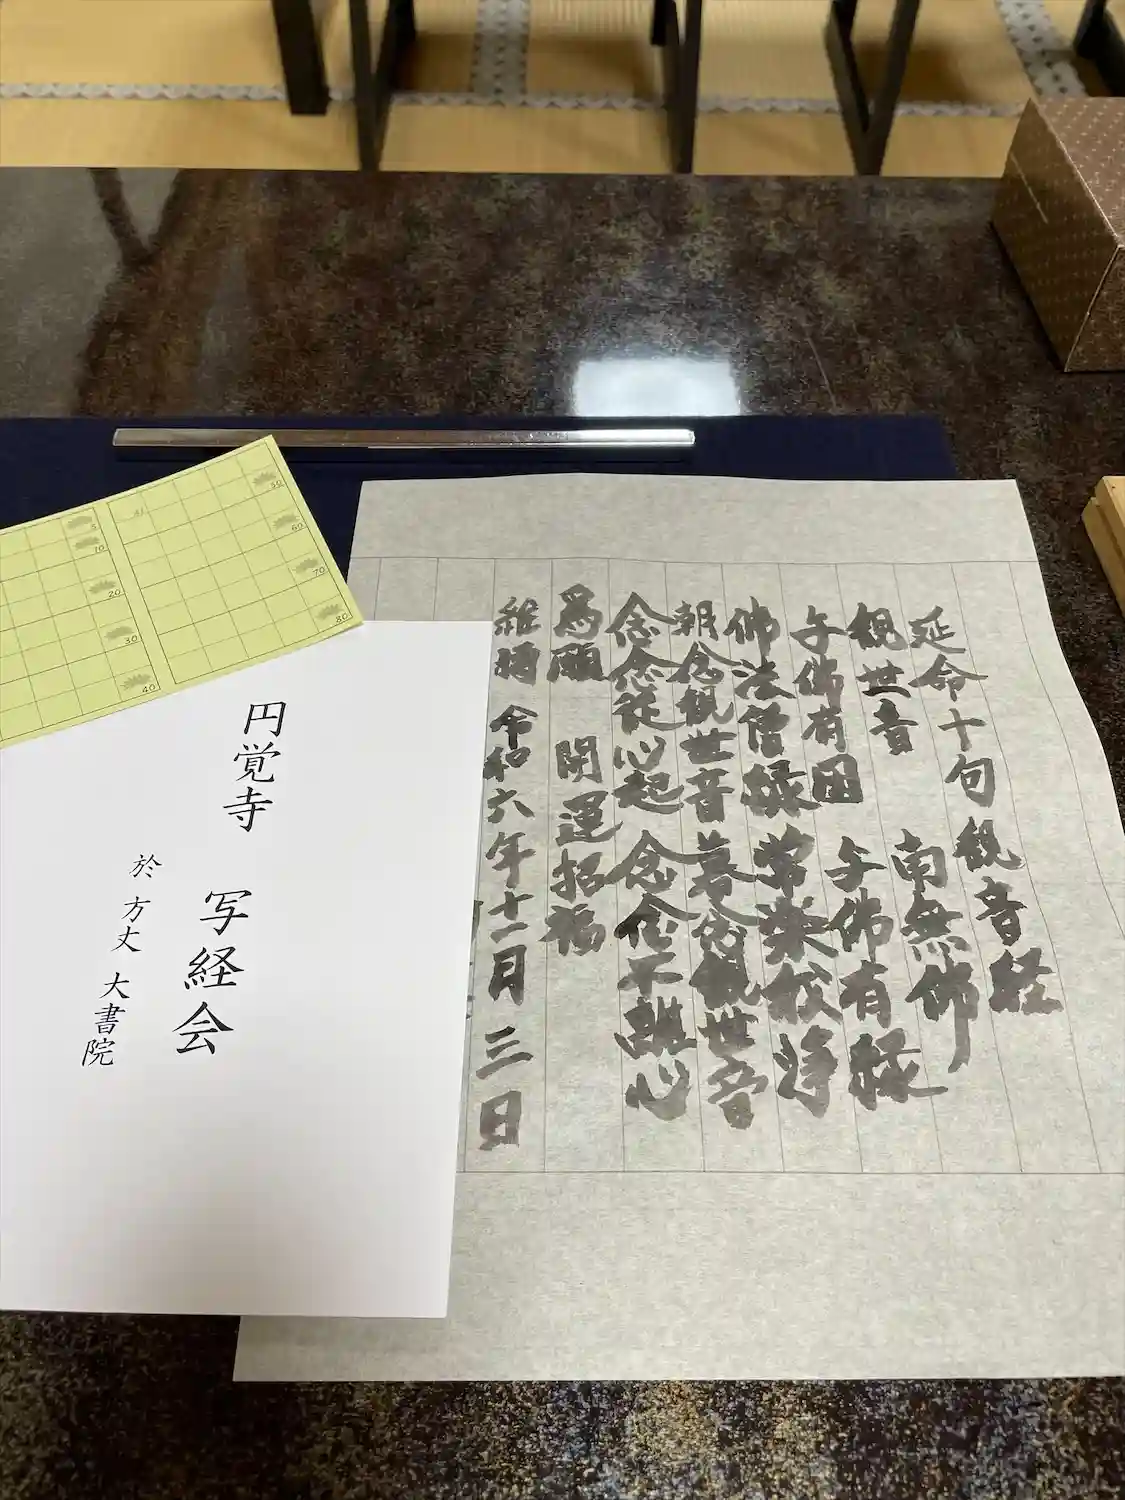 延命十句観音経
観世音 南無佛
与佛有因 与佛有縁
佛法僧縁 常楽我浄
朝念観世音 暮念観世音
念念従心起 念念不離心
為願 開運招福
維持 令和六年十一月三日
円覚寺 写経会
於 方丈 大書院
5
10
20
30
40
41
50
60
70
80